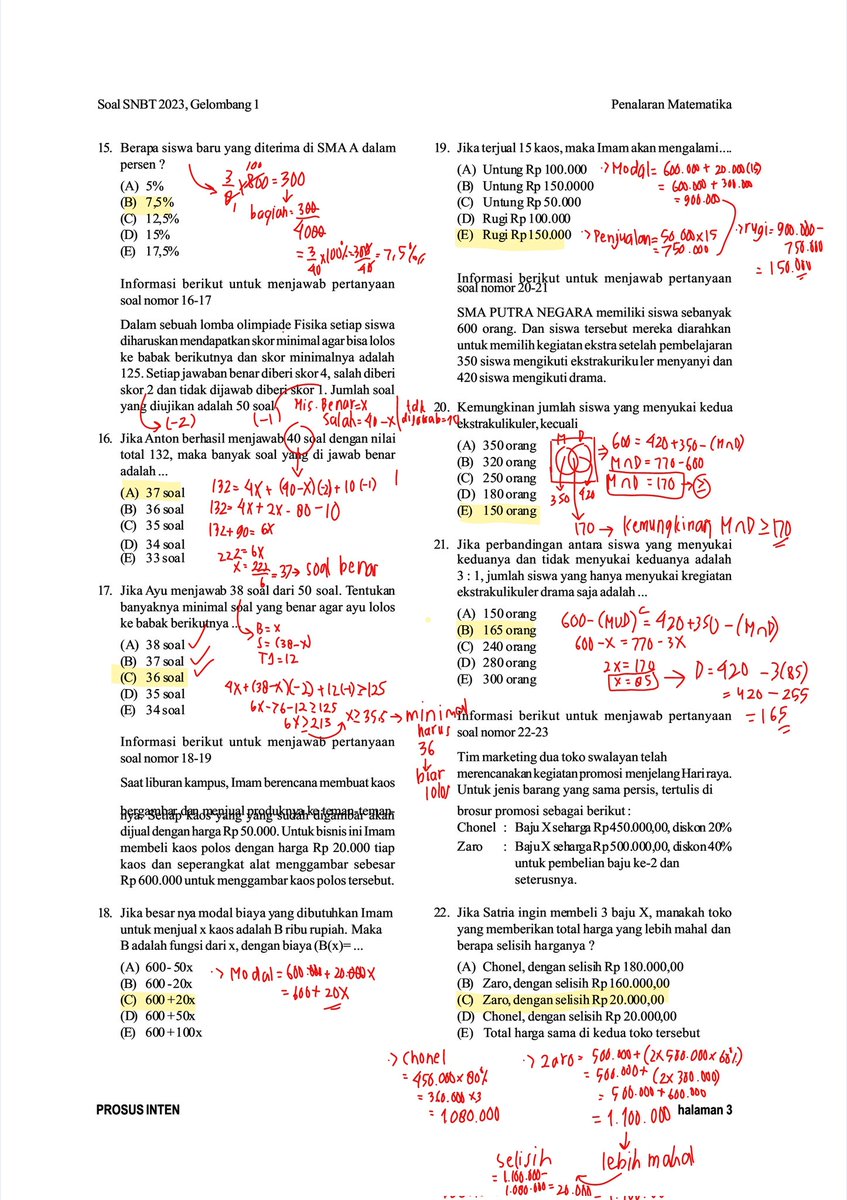 Soal SNBT 2023, Gelombang 1
Penalaran Matematika
15. Berapa siswa baru yang diterima di SMA A dalam
persen ?
(A) 5%
(B) 7,5%
(C) 12,5%
(D) 15%
(E) 17,5%
3/8 × 800 = 300
100
1
bagian = 300/4000
= 3/40 × 100% = 300/40 = 7,5%
Informasi berikut untuk menjawab pertanyaan
soal nomor 16-17
Dalam sebuah lomba olimpiade Fisika setiap siswa
diharuskan mendapatkan skor minimal agar bisa lolos
ke babak berikutnya dan skor minimalnya adalah
125. Setiap jawaban benar diberi skor 4, salah diberi
skor 2 dan tidak dijawab diberi skor 1. Jumlah soal
yang diujikan adalah 50 soal
(-2)
(-1)
Mis. Benar = x
Salah = 40 - x
tdk
dijawab = 10
16. Jika Anton berhasil menjawab 40 soal dengan nilai
total 132, maka banyak soal yang di jawab benar
adalah ...
(A) 37 soal
(B) 36 soal
(C) 35 soal
(D) 34 soal
(E) 33 soal
132 = 4x + (40-x)(-2) + 10(-1)
132 = 4x + 2x - 80 - 10
132 + 90 = 6x
222 = 6x
x = 222/6 = 37 → soal benar
17. Jika Ayu menjawab 38 soal dari 50 soal. Tentukan
banyaknya minimal soal yang benar agar ayu lolos
ke babak berikutnya ...
(A) 38 soal
(B) 37 soal
(C) 36 soal
(D) 35 soal
(E) 34 soal
B = x
S = (38-x)
TJ = 12
4x + (38-x)(-2) + 12(-1) ≥ 125
6x - 76 - 12 ≥ 125
6x ≥ 213
x ≥ 35,5 → minimal
harus
36
↓
biar
lolos
Informasi berikut untuk menjawab pertanyaan
soal nomor 18-19
Saat liburan kampus, Imam berencana membuat kaos
bergambar dan menjual produknya ke teman-teman
nya. Setiap kaos yang yang sudah digambar akan
dijual dengan harga Rp 50.000. Untuk bisnis ini Imam
membeli kaos polos dengan harga Rp 20.000 tiap
kaos dan seperangkat alat menggambar sebesar
Rp 600.000 untuk menggambar kaos polos tersebut.
18. Jika besar nya modal biaya yang dibutuhkan Imam
untuk menjual x kaos adalah B ribu rupiah. Maka
B adalah fungsi dari x, dengan biaya (B(x)= ...
(A) 600- 50x
(B) 600 -20x
(C) 600 +20x
(D) 600 +50x
(E) 600 +100x
Modal = 600.000 + 20.000x
= 600 + 20x
19. Jika terjual 15 kaos, maka Imam akan mengalami....
(A) Untung Rp 100.000
(B) Untung Rp 150.0000
(C) Untung Rp 50.000
(D) Rugi Rp 100.000
(E) Rugi Rp 150.000
Modal = 600.000 + 20.000(15)
= 600.000 + 300.000
= 900.000
Penjualan = 50.000 x 15
= 750.000
rugi = 900.000 -
750.000
= 150.000
Informasi berikut untuk menjawab pertanyaan
soal nomor 20-21
SMA PUTRA NEGARA memiliki siswa sebanyak
600 orang. Dan siswa tersebut mereka diarahkan
untuk memilih kegiatan ekstra setelah pembelajaran
350 siswa mengikuti ekstrakurikuler menyanyi dan
420 siswa mengikuti drama.
20. Kemungkinan jumlah siswa yang menyukai kedua
ekstrakulikuler, kecuali
(A) 350 orang
(B) 320 orang
(C) 250 orang
(D) 180 orang
(E) 150 orang
M D
350 420
600 = 420 + 350 - (M∩D)
M∩D = 770 - 600
M∩D = 170 → ≥
170 → Kemungkinan M∩D ≥ 170
21. Jika perbandingan antara siswa yang menyukai
keduanya dan tidak menyukai keduanya adalah
3 : 1, jumlah siswa yang hanya menyukai kregiatan
ekstrakulikuler drama saja adalah ...
(A) 150 orang
(B) 165 orang
(C) 240 orang
(D) 280 orang
(E) 300 orang
600 - (M∪D)ᶜ = 420 + 350 - (M∩D)
600 - x = 770 - 3x
2x = 170
x = 85 → D = 420 - 3(85)
= 420 - 255
= 165
Informasi berikut untuk menjawab pertanyaan
soal nomor 22-23
Tim marketing dua toko swalayan telah
merencanakan kegiatan promosi menjelang Hari raya.
Untuk jenis barang yang sama persis, tertulis di
brosur promosi sebagai berikut :
Chonel : Baju X seharga Rp 450.000,00, diskon 20%
Zaro : Baju X seharga Rp 500.000,00, diskon 40%
untuk pembelian baju ke-2 dan
seterusnya.
22. Jika Satria ingin membeli 3 baju X, manakah toko
yang memberikan total harga yang lebih mahal dan
berapa selisih harganya ?
(A) Chonel, dengan selisih Rp 180.000,00
(B) Zaro, dengan selisih Rp 160.000,00
(C) Zaro, dengan selisih Rp 20.000,00
(D) Chonel, dengan selisih Rp 20.000,00
(E) Total harga sama di kedua toko tersebut
Chonel
= 450.000 x 80%
= 360.000 x 3
= 1.080.000
Zaro = 500.000 + (2 x 500.000 x 60%)
= 500.000 + (2 x 300.000)
= 500.000 + 600.000
= 1.100.000
↓
lebih mahal
selisih
= 1.100.000 -
1.080.000 = 20.000
PROSUS INTEN
halaman 3